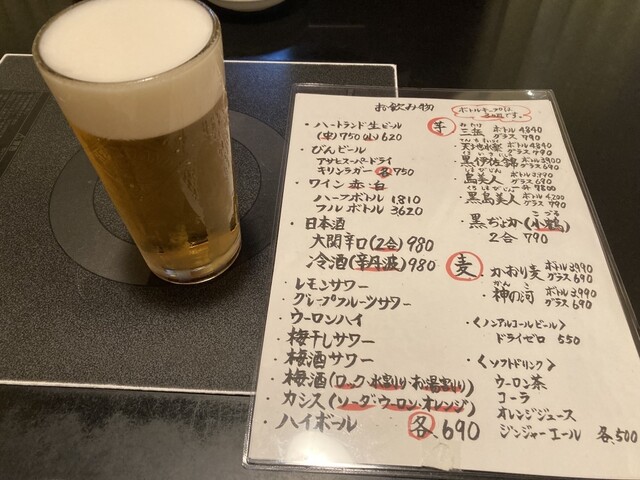 お飲み物
・ハートランド生ビール
(中)750 (小)620
・びんビール
アサヒスーパードライ
キリンラガー 各750
・ワイン 赤・白
ハーフボトル 1,810
フルボトル 3620
・日本酒
大関辛口(2合)980
冷酒(辛丹波)980
・レモンサワー
・グレープフルーツサワー
・ウーロンハイ
・梅干しサワー
・梅酒サワー
・梅酒(ロック・水割り・お湯割り)
・カシス(ソーダ・ウーロン・オレンジ)
・ハイボール 各、690
ボトルキープは
3ヵ月です。
芋
ボトル 4840
グラス 790
ボトル 4840
グラス 790
・黒伊佐錦 ボトル 3900
グラス 690
・島美人 ボトル 3990
グラス 690
升 7800
・黒島美人 ボトル 4200
グラス 790
・黒ぢょか(小鶴)
2合 790
麦
・かおり麦 ボトル 3,990
グラス 690
・神の河 ボトル 3,990
グラス 690
・<ノンアルコールビール>
ドライゼロ 550
・<ソフトドリンク>
ウーロン茶
コーラ
オレンジジュース
ジンジャーエール 各、500